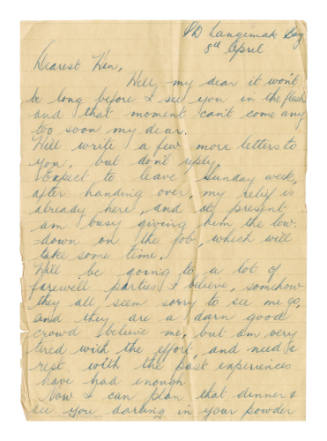 Langemak Bay
8th April
Dearest Ken,
Well, my dear it won't
be long before I see you in the flesh
and that moment can't come any
too soon my dear.
Will write a few more letters to
you, but don't reply.
Expect to leave Sunday week,
after handing over, my relief is
already here, and at present
am busy giving him the low
down on the job, which will
take some time.
Will be going to a lot of
farewell parties I believe, somehow
they all seem sorry to see me go,
and they are a darn good
crowd believe me, but am very
tired with the effort, and need a
rest with the past experiences
have had enough
Now I can plan that dinner &
see you darling in your powder